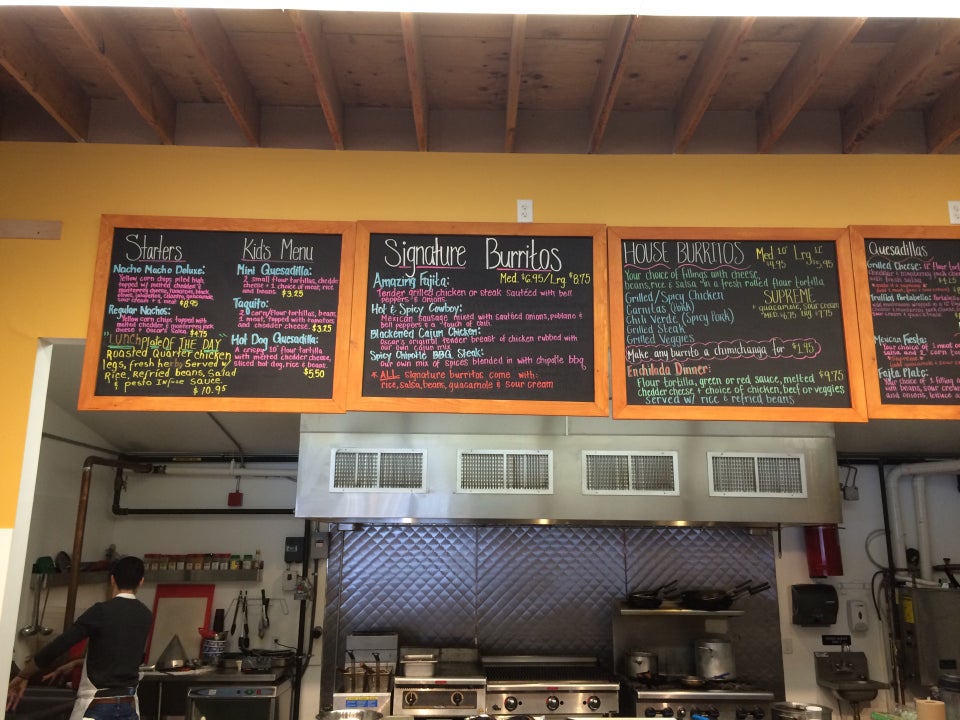 Starters
Nacho Macho Deluxe:
Yellow corn chips piled high,
topped w/ melted cheddar &
onions, jalapeños, cilantro, guacamole,
sour cream + 1 meat
$8.95
Regular Nachos:
Yellow corn chips topped with
melted cheddar & monterey jack
cheese + Oscar's salsa $4.75
"Lunch Plate OF THE DAY"
Roasted Quarter chicken
legs, fresh herby Served w/
Rice, Refried beans, Salad
& pesto Infuse Sauce.
$10.95
Kid's Menu
Mini Quesadilla:
2 small flour tortillas, cheddar
cheese + choice of meat, rice
and beans. $3.25
Taquito:
2 corn/flour tortillas, beans,
1 meat, topped with tomatoes
and cheddar cheese. $3.25
Hot Dog Quesadilla:
A crispy 10" flour tortilla
with melted cheddar cheese,
sliced hot dog, rice & beans.
$5.50
Signature Burritos
Med. $6.95/Lrg. $8.75
Amazing Fajita:
Tender grilled chicken or steak sautéed with bell
peppers & onions.
Hot & Spicy Cowboy:
Mexican Sausage mixed with sautéed onions, poblano &
bell peppers & a "touch" of chili.
Blackened Cajun Chicken:
Oscar's original tender breast of chicken rubbed with
our own cajun mix
Spicy Chipotle BBQ Steak:
our own mix of spices blended in with chipotle bbq
* ALL signature burritos come with:
rice, salsa, beans, guacamole & sour cream
HOUSE BURRITOS Med 10" $4.95 Lrg. 12" $5.95
Your choice of fillings with cheese,
beans, rice & salsa in a fresh rolled flour tortilla
Grilled/Spicy Chicken
Carnitas (Pork)
Chile Verde (Spicy Pork)
Grilled Steak
Grilled Veggies
SUPREME
+ guacamole, sour cream
Med. $6.75 Big $7.75
Make any burrito a chimichanga for $1.45
Enchilada Dinner:
Flour tortilla, green or red sauce, melted $9.75
cheddar cheese, + choice of chicken, beef or veggies
served w/ rice & refried beans
Quesadillas
Grilled Cheese: 12" flour
Cheddar & monterey jack
Grilled Portabella:
Mexican Fiesta:
Your choice of 1
salsa and 2 corn
Fajita Plate:
Your choice of 1 filling
with beans, sour
and onions, lettuce